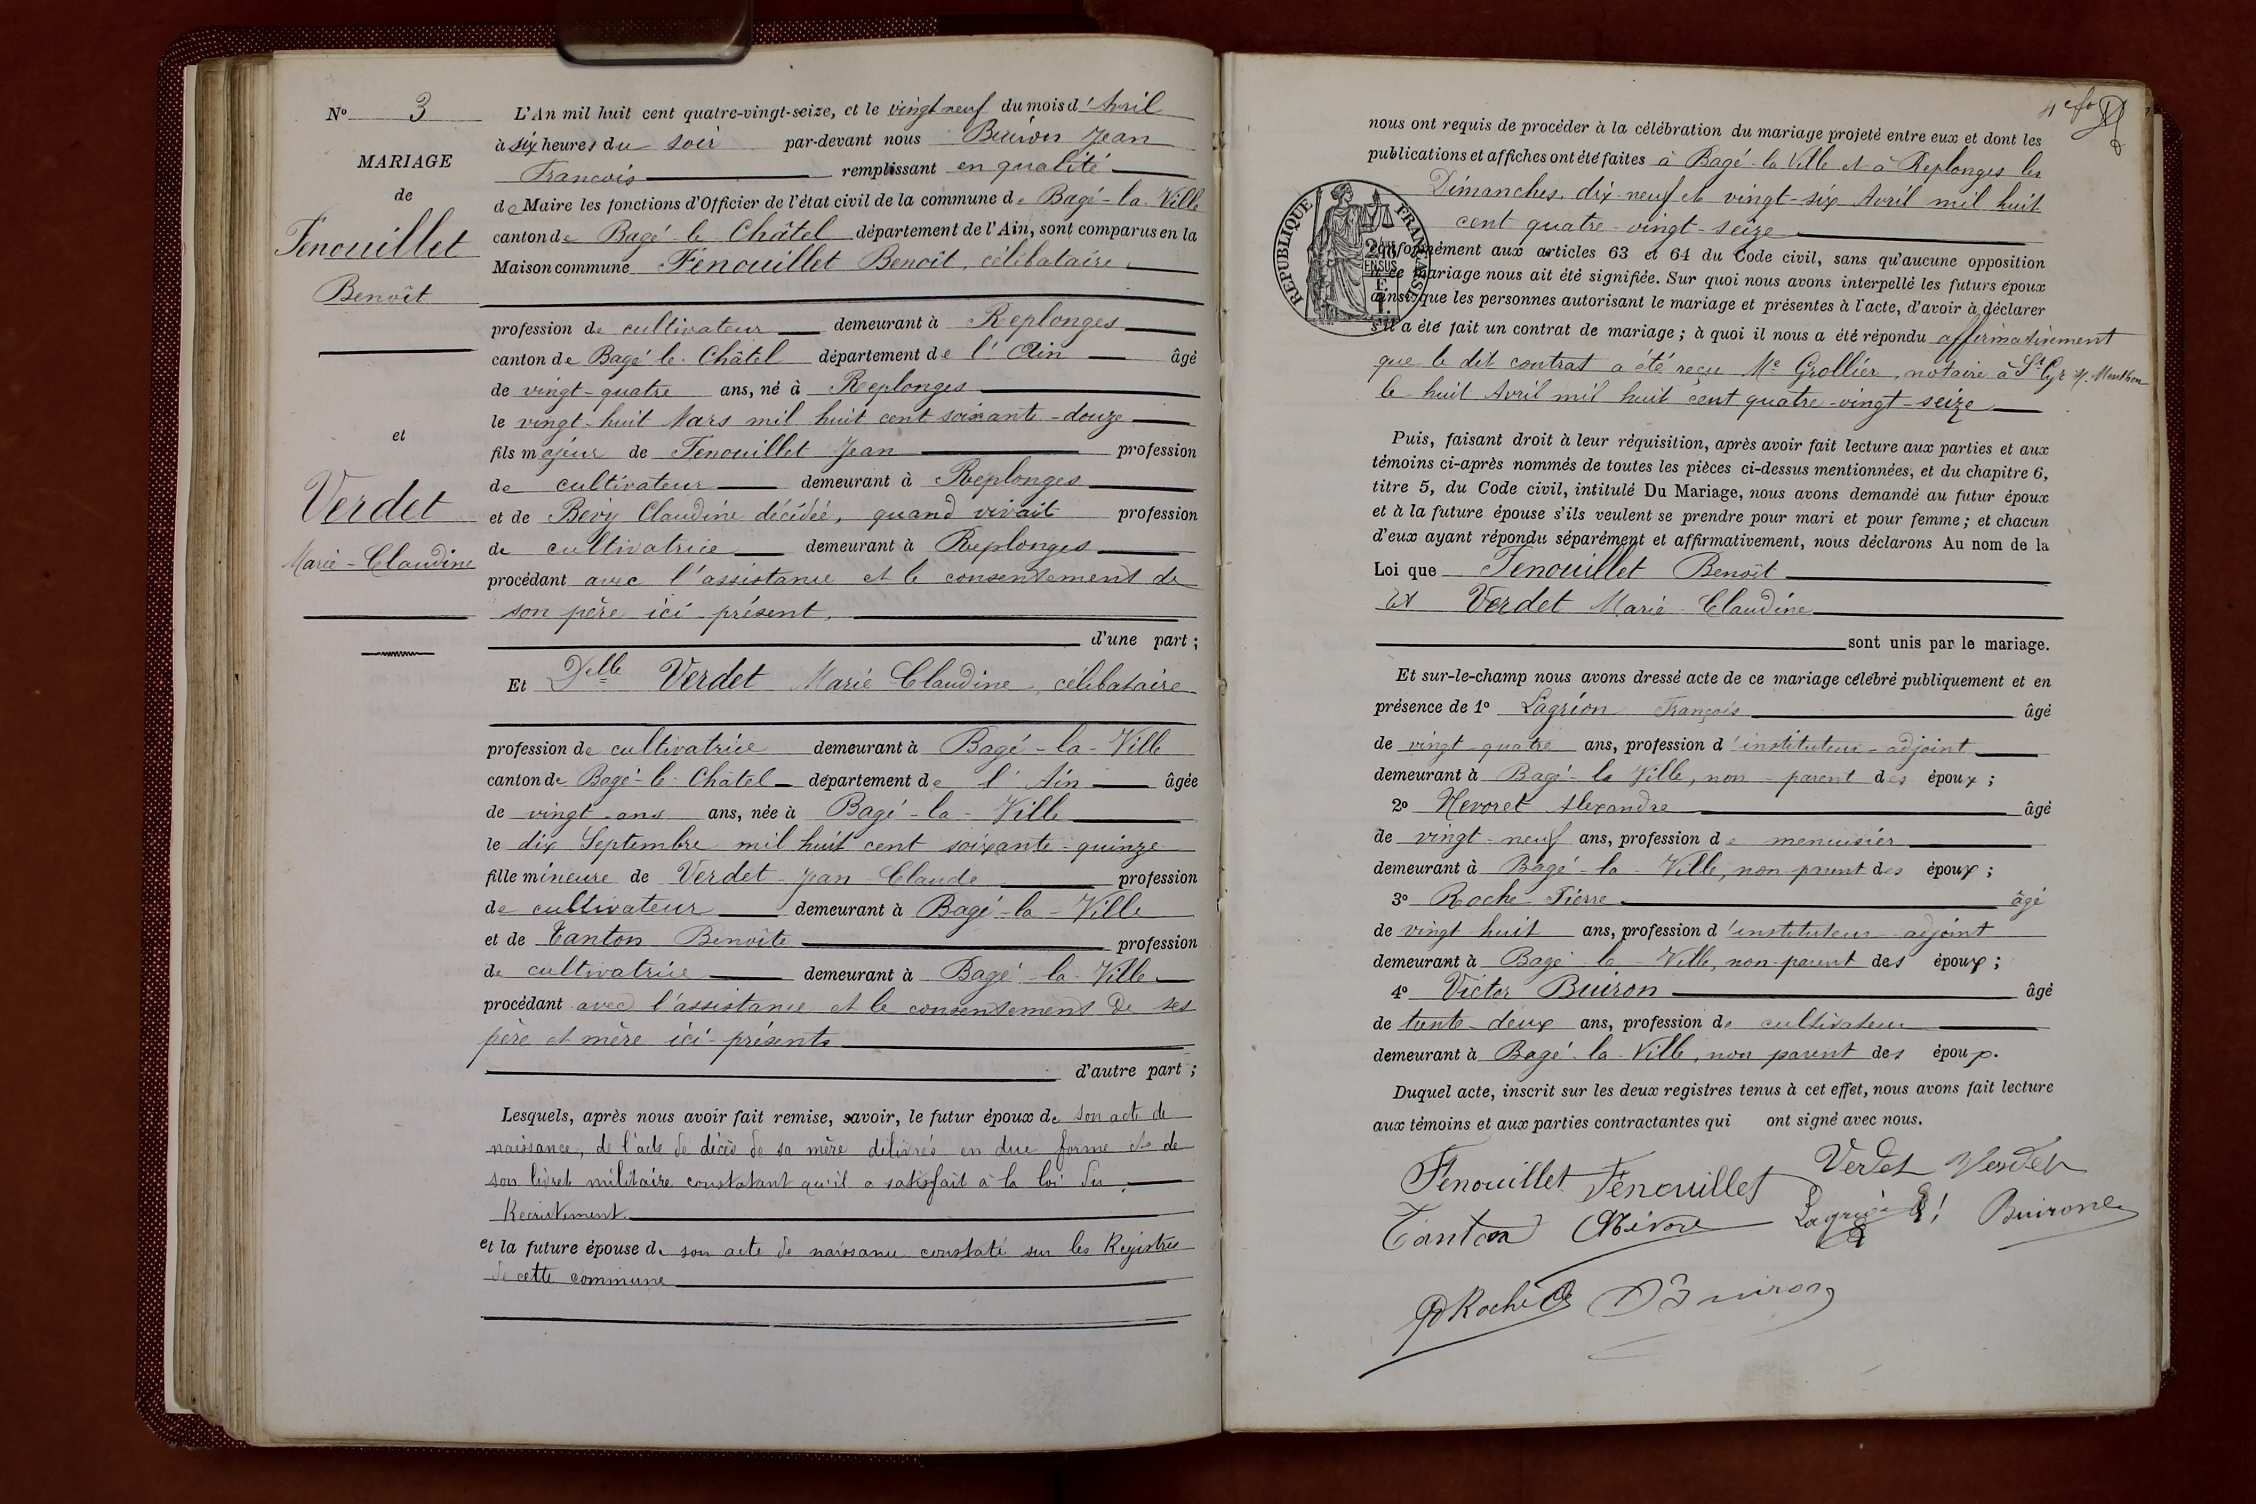 N° 3
MARIAGE
de
Fenouillet
Benoît
et
Verdet
Marie-Claudine
L'An mil huit cent quatre-vingt-seize, et le vingt neuf du mois d'Avril
à six heures du soir par-devant nous Buiron Jean
François remplissant en qualité
de Maire les fonctions d'Officier de l'état civil de la commune de Bagé-la-Ville
canton de Bagé-le-Châtel département de l'Ain, sont comparus en la
Maison commune Fenouillet Benoît, célibataire
profession de cultivateur demeurant à Replonges
canton de Bagé-le-Châtel département de l'Ain âgé
de vingt-quatre ans, né à Replonges
le vingt-huit Mars mil huit cent soixante-douze
fils majeur de Fenouillet Jean profession
de cultivateur demeurant à Replonges
et de Bévy Claudine décédée, quand vivait profession
de cultivatrice demeurant à Replonges
procédant avec l'assistance et le consentement de
son père ici présent.
d'une part ;
Et Delle Verdet Marie Claudine, célibataire
profession de cultivatrice demeurant à Bagé-la-Ville
canton de Bagé-le-Châtel département de l'Ain âgée
de vingt ans ans, née à Bagé-la-Ville
le dix Septembre mil huit cent soixante-quinze
fille mineure de Verdet Jean-Claude profession
de cultivateur demeurant à Bagé-la-Ville
et de Tanton Benoîte profession
de cultivatrice demeurant à Bagé-la-Ville
procédant avec l'assistance et le consentement de ses
père et mère ici-présents
d'autre part ;
Lesquels, après nous avoir fait remise, savoir, le futur époux de son acte de
naissance, de l'acte de décès de sa mère délivrés en due forme et de
son livret militaire constatant qu'il a satisfait à la loi du
Recrutement.
et la future épouse de son acte de naissance constaté sur les Registres
de cette commune
4e fo
nous ont requis de procéder à la célébration du mariage projeté entre eux et dont les
publications et affiches ont été faites à Bagé-la-Ville et à Replonges les
Dimanches dix-neuf et vingt-six Avril mil huit
cent quatre-vingt-seize
RÉPUBLIQUE FRANÇAISE
conformément aux articles 63 et 64 du Code civil, sans qu'aucune opposition
à ce mariage nous ait été signifiée. Sur quoi nous avons interpellé les futurs époux
ainsi que les personnes autorisant le mariage et présentes à l'acte, d'avoir à déclarer
s'il a été fait un contrat de mariage ; à quoi il nous a été répondu affirmativement
que le dit contrat a été reçu Me Grollier, notaire à St Cyr s/. Menthon
le huit Avril mil huit cent quatre-vingt-seize
Puis, faisant droit à leur réquisition, après avoir fait lecture aux parties et aux
témoins ci-après nommés de toutes les pièces ci-dessus mentionnées, et du chapitre 6,
titre 5, du Code civil, intitulé Du Mariage, nous avons demandé au futur époux
et à la future épouse s'ils veulent se prendre pour mari et pour femme ; et chacun
d'eux ayant répondu séparément et affirmativement, nous déclarons Au nom de la
Loi que Fenouillet Benoît
et Verdet Marie Claudine
sont unis par le mariage.
Et sur-le-champ nous avons dressé acte de ce mariage célébré publiquement et en
présence de 1° Lagrion François âgé
de vingt quatre ans, profession d'instituteur-adjoint
demeurant à Bagé-la Ville, non-parent des époux ;
2° Nevoret Alexandre âgé
de vingt-neuf ans, profession de menuisier
demeurant à Bagé-la-Ville, non parent des époux ;
3° Roche Pierre âgé
de vingt huit ans, profession d'instituteur adjoint
demeurant à Bagé-la-Ville, non-parent des époux ;
4° Victor Buiron âgé
de trente-deux ans, profession de cultivateur
demeurant à Bagé-la-Ville, non parent des époux.
Duquel acte, inscrit sur les deux registres tenus à cet effet, nous avons fait lecture
aux témoins et aux parties contractantes qui ont signé avec nous.
Fenouillet Fenouillet Verdet Verdet
Tanton Lagrion Buiron
Roche Buiron